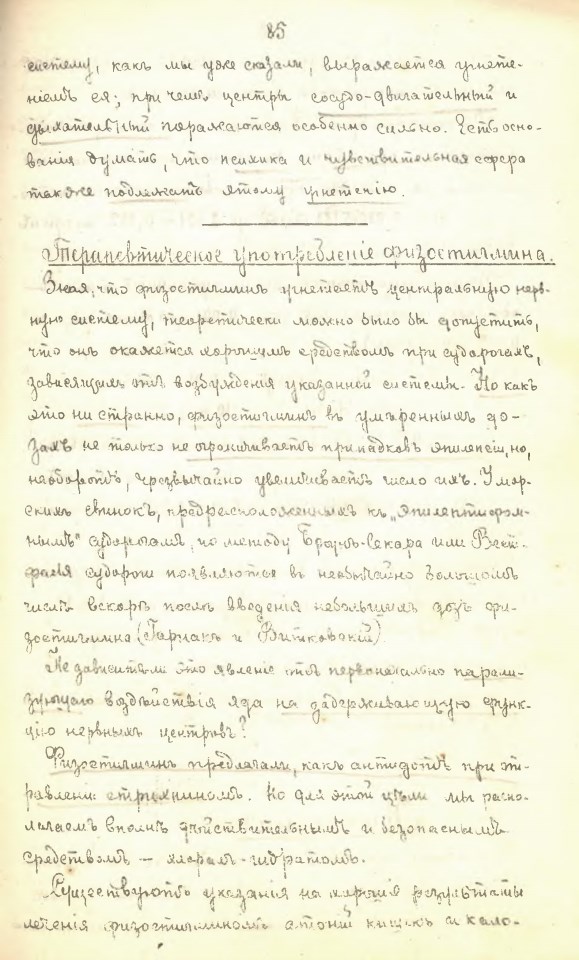 85
систему, какъ мы уже сказали, выражается угнете-
ніемъ ея; при чемъ центры сосудо-двигательный и
дыхательный поражаются особенно сильно. Есть осно-
ванія думать, что психика и чувствительная сфера
также подлежатъ этому угнетенію.
Терапевтическое употребленіе физостигмина.
Зная, что физостигминъ угнетаетъ центральную нерв-
ную систему, теоретически можно было бы допустить,
что онъ окажется хорошимъ средствомъ при судорогахъ,
зависящихъ отъ возбужденія указанной системы. Но какъ
это ни странно, физостигминъ въ умѣренныхъ до-
захъ не только не ограничиваетъ припадковъ эпилепсіи, но,
наоборотъ, чрезвычайно увеличиваетъ число ихъ. У мор-
скихъ свинокъ, предрасположенныхъ къ „эпилептифом-
нымъ" судорогамъ, по методу Броунъ-Секара или Вест-
фаля судороги появляются въ необычайно большомъ
числѣ вскорѣ послѣ введенія небольшихъ дозъ фи-
зостигмина (Гарнакъ и Витковскій)
Не зависитъ ли это явленіе отъ первоначально парали-
зующаго воздѣйствія яда на задерживающую функ-
цію нервныхъ центровъ?
Физостигминъ предлагали, какъ антидотъ при от-
равлени стрихниномъ. Но для этой цѣли мы распо-
лагаемъ вполнѣ дѣйствительнымъ и безопаснымъ
средствомъ — хлоралъ-гидратомъ.
Существуютъ указанія на хорошіе результаты
леченія физостигминомъ атоній кишекъ и кало-